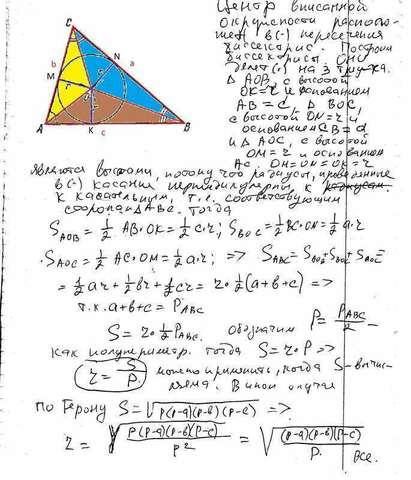 C
b
a
N
M
A
K
c
B
Центр вписанной
окружности располо-
жен в (·) пересечения
биссектрис. Построим
биссектрисы. Они
делят (·) на 3 тр-ка.
Δ AOB, с высотой
OK=r и основанием
AB=c, Δ BOC,
с высотой ON=r и
основанием CB=a
и Δ AOC, с высотой
OM=r и основанием
AC. OH=ON=OK=r
являются высотами, потому что радиусы, проведенные
в (·) касания перпендикулярны, к
к касательным, т.е. соответствующим
сторонам Δ ABC. Тогда
S_AOB = 1/2 AB·OK = 1/2 c·r; S_BOC = 1/2 BC·ON = 1/2 a·r
S_AOC = 1/2 AC·OM = 1/2 b·r; => S_ABC = S_AOB + S_BOC + S_AOC =
= 1/2 ar + 1/2 br + 1/2 cr = r·1/2 (a+b+c) =>
т.к. a+b+c = P_ABC
S = r·1/2 P_ABC. Обозначим p = P_ABC/2
как полупериметр. Тогда S = r·p =>
r = S/p. можно применять, когда S-вычис-
лена. В ином случае
по Герону S = √(p(p-a)(p-b)(p-c)) =>
r = √(p(p-a)(p-b)(p-c)/p²) = √((p-a)(p-b)(p-c)/p) Все.